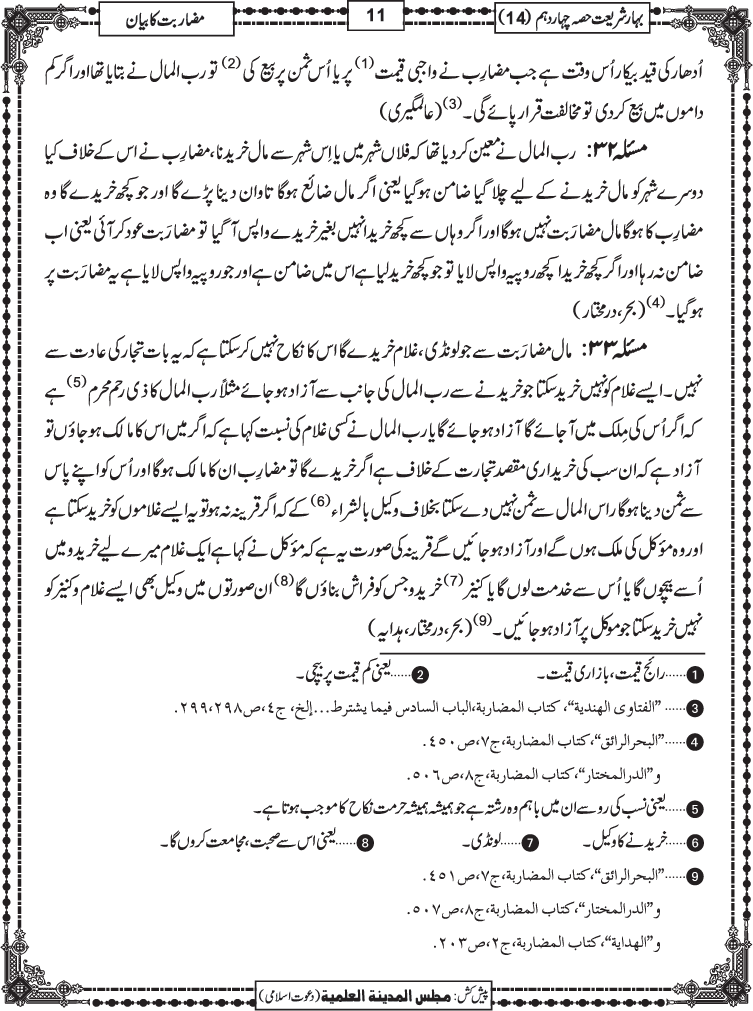 بہارِ شریعت حصہ چہاردہم (14)
11
مضاربت کا بیان
اُدھار کی قید بیکار اُس وقت ہے جب مضارِب نے واجبی قیمت(1) پر یا اُس ثمن پر بیع کی(2) تو رب المال نے بتایا تھا اور اگر کم
داموں میں بیع کردی تو مخالفت قرار پائے گی۔(3) (عالمگیری)
مسئلہ ۳۲: رب المال نے معین کردیا تھا کہ فلاں شہر میں یا اِس شہر سے مال خریدنا، مضارِب نے اس کے خلاف کیا
دوسرے شہر کو مال خریدنے کے لیے چلا گیا ضامن ہوگیا یعنی اگر مال ضائع ہوگا تاوان دینا پڑے گا اور جو کچھ خریدے گا وہ
مضارِب کا ہوگا مال مضاربت نہیں ہوگا اور اگر وہاں سے کچھ خریدا نہیں بغیر خریدے واپس آگیا تو مضارَبت عود کر آئی یعنی اب
ضامن نہ رہا اور اگر کچھ خریدا کچھ روپیہ واپس لایا تو جو کچھ خرید لیا ہے اس میں ضامن ہے اور جو روپیہ واپس لایا ہے یہ مضارَبت پر
ہوگیا۔(4) (بحر، درمختار)
مسئلہ ۳۳: مال مضارَبت سے جو لونڈی، غلام خریدے گا اس کا نکاح نہیں کرسکتا ہے کہ یہ بات تجار کی عادت سے
نہیں۔ ایسے غلام کو نہیں خرید سکتا جو خریدنے سے رب المال کی جانب سے آزاد ہوجائے مثلاً رب المال کا ذی رحم محرم(5) ہے
کہ اگر اُس کی مِلک میں آجائے گا آزاد ہوجائے گا یا رب المال نے کسی غلام کی نسبت کہا ہے کہ اگر میں اس کا مالک ہوجاؤں تو
آزاد ہے کہ ان سب کی خریداری مقصد تجارت کے خلاف ہے اگر خریدے گا تو مضارِب ان کا مالک ہوگا اور اُس کو اپنے پاس
سے ثمن دینا ہوگا راس المال سے ثمن نہیں دے سکتا بخلاف وکیل بالشراء(6) کے کہ اگر قرینہ نہ ہو تو یہ ایسے غلاموں کو خرید سکتا ہے
اور وہ مؤکل کی ملک ہوں گے اور آزاد ہوجائیں گے قرینہ کی صورت یہ ہے کہ مؤکل نے کہا ہے ایک غلام میرے لیے خریدو میں
اُسے بیچوں گا یا اُس سے خدمت لوں گا یا کنیز(7) خریدو جس کو فراش بناؤں گا(8) ان صورتوں میں وکیل بھی ایسے غلام و کنیز کو
نہیں خرید سکتا جو موکل پر آزاد ہوجائیں۔(9) (بحر، درمختار، ہدایہ)
1......رائج قیمت، بازاری قیمت۔ 2......یعنی کم قیمت پر بیچی۔
3...... ”الفتاوى الهندية“، كتاب المضاربة، الباب السادس فيما يشترط...إلخ، ج٤، ص٢٩٨،٢٩٩.
4......”البحرالرائق“، كتاب المضاربة، ج٧، ص٤٥٠.
و”الدرالمختار“، كتاب المضاربة، ج٨، ص٥٠٦.
5......یعنی نسب کی رو سے ان میں باہم وہ رشتہ ہے جو ہمیشہ ہمیشہ حرمت نکاح کا موجب ہوتا ہے۔
6......خریدنے کا وکیل۔ 7......لونڈی۔ 8......یعنی اس سے صحبت، مجامعت کروں گا۔
9......”البحرالرائق“، كتاب المضاربة، ج٧، ص٤٥١.
و”الدرالمختار“، كتاب المضاربة، ج٨، ص٥٠٧.
و”الهداية“، كتاب المضاربة، ج٢، ص٢٠٣.
پیش کش: مجلس المدينة العلمية (دعوتِ اسلامی)